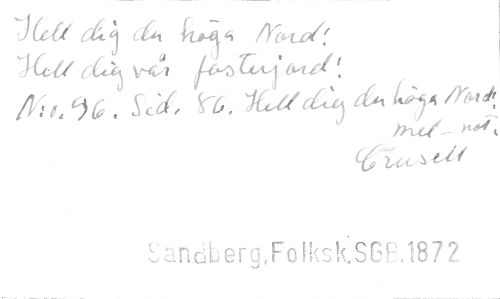 Hell dig du höga Nord!
Hell dig vår fosterjord!
N:o. 96. Sid. 86. Hell dig du höga Nord!
mel-not.
Crusell
Sandberg,Folksk.SGB.1872